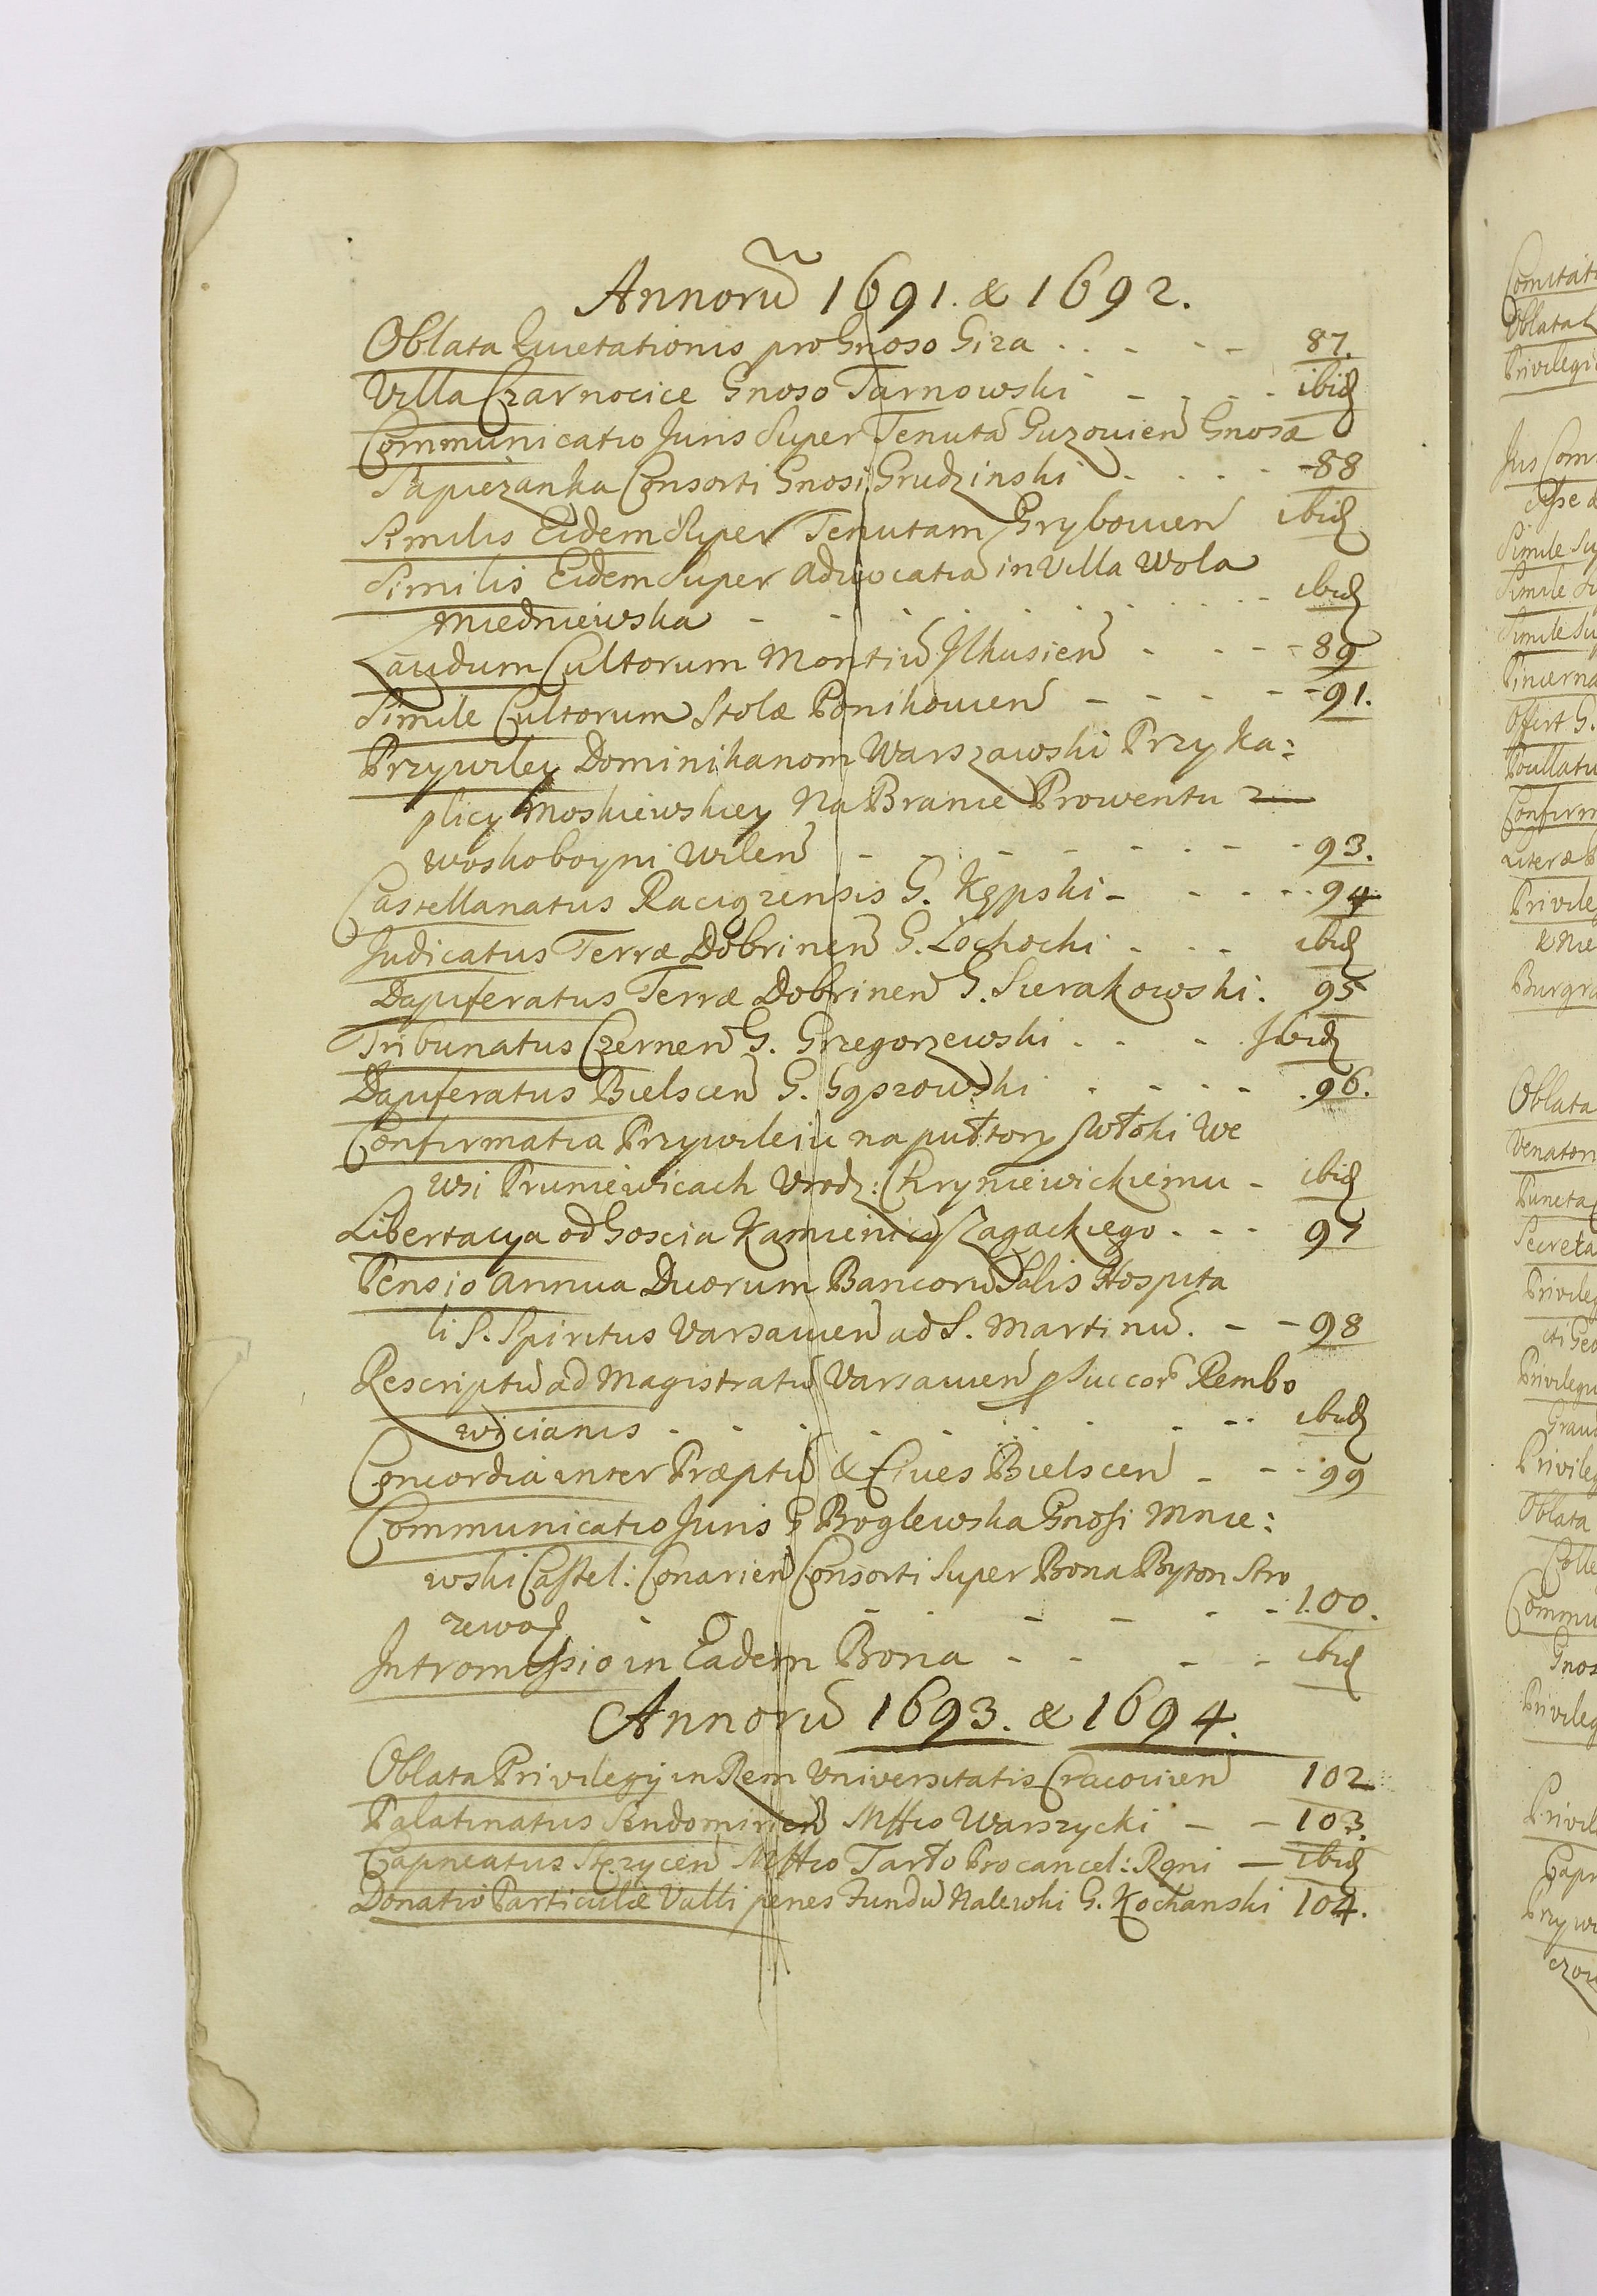 Annorũ 1691. & 1692.
Oblata Quietationis pro Gnoso Giza 87.
Villa Czarnocice Gnoso Tarnowski ibid
Communicatio Juris Super Tenutã Guzouien Gnosæ
Sapiezanka Consorti Gnosi Grudzinski 88
Similis Eidem Super Tenutam Grybouien ibid
Similis Eidem Super Aduocatiã in Villa Wola
Miedniewska ibid
Laudum Cultorum Montiũ Ilkusien 89
Simile Cultorum Stolæ Ponikouien 91.
Przywiley Dominikanom Warszawski Przy Ka:
plicy Moskiewskiey Na Branie Prowentu z
woskoboyni Wilen 93.
Castellanatus Raciązensis G. Kępski 94
Judicatus Terræ Dobrinen G. Lochocki ibid
Dapiferatus Terræ Dobrinen G. Sierakowski. 95
Tribunatus Czernen G. Grzegorzewski Ibid
Dapiferatus Bielscen G. Gąszowski 96.
Confirmatia Przywileiu na pułtory włoki we
wsi Pruniewicach Vrodz: Chryniewickiemu ibid
Libertacya od Goscia Kamienicy Zagackiego 97
Pensio annua Duorum Bancorũ Salis Hospita
li S. Spiritus Varsauien ad S. Martinũ. 98
Rescriptũ ad Magistratũ Varsauien p Succor Rembo
wicianis ibid
Concordia inter Præptũ & Ciues Bielscen 99
Communicatio Juris G Boglewska Gnosi Mnie:
wski Castel: Conarien Consorti Super Bona Byton Stro
zewo 100.
Intromissio in Eadem Bona ibid
Annorũ 1693. & 1694.
Oblata Privilegij in Rem Universitatis Cracouien 102
Palatinatus Sendomirien Mffco Warszycki 103.
Capneatus Stezycen Mffco Tarło Procancel: Rgni ibid
Donatio Particulæ Valli penes Fundũ Nalewki G. Kochanski 104.